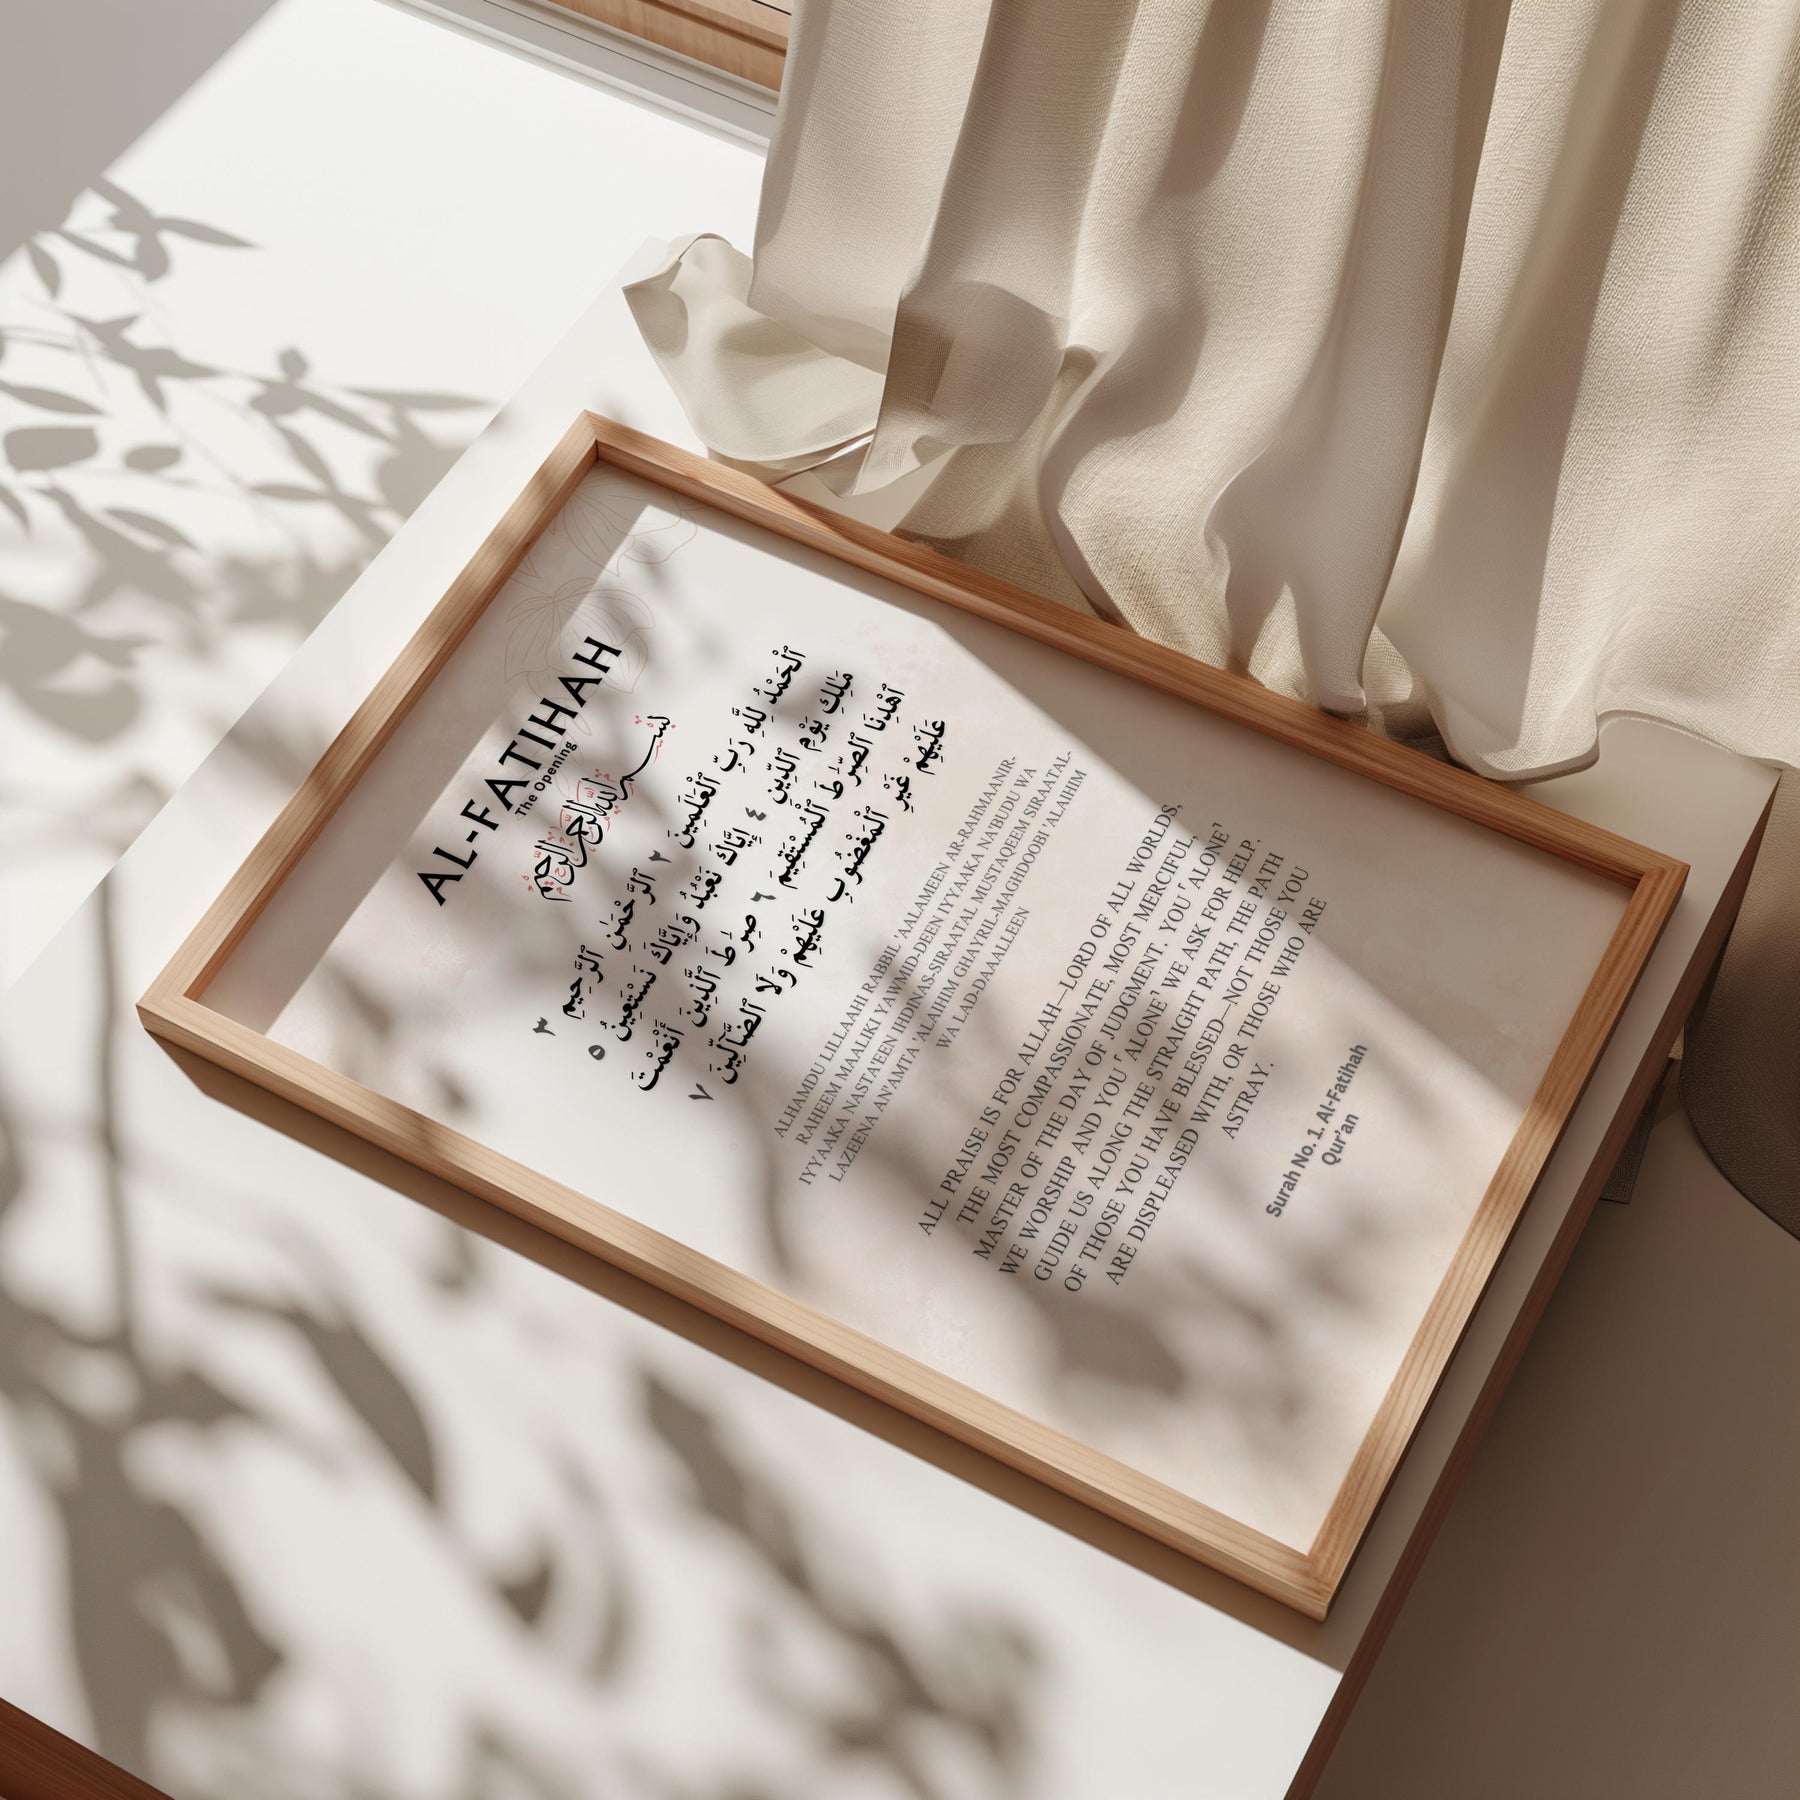 AL-FATIHAH
The Opening
بِسْمِ اللَّهِ الرَّحْمَٰنِ الرَّحِيمِ
ٱلْحَمْدُ لِلَّهِ رَبِّ ٱلْعَٰلَمِينَ ٢ ٱلرَّحْمَٰنِ ٱلرَّحِيمِ ٣
مَٰلِكِ يَوْمِ ٱلدِّينِ ٤ إِيَّاكَ نَعْبُدُ وَإِيَّاكَ نَسْتَعِينُ ٥
ٱهْدِنَا ٱلصِّرَٰطَ ٱلْمُسْتَقِيمَ ٦ صِرَٰطَ ٱلَّذِينَ أَنْعَمْتَ
عَلَيْهِمْ غَيْرِ ٱلْمَغْضُوبِ عَلَيْهِمْ وَلَا ٱلضَّآلِّينَ ٧
ALHAMDU LILLAAHI RABBIL 'AALAMEEN AR-RAHMAANIR-
RAHEEM MAALIKI YAWMID-DEEN IYYAAKA NA'BUDU WA
IYYAAKA NASTA'EEN IHDINAS-SIRAATAL MUSTAQEEM SIRAATAL-
LAZEENA AN'AMTA 'ALAIHIM GHAYRIL-MAGHDOOBI 'ALAIHIM
WA LAD-DAAALLEEN
ALL PRAISE IS FOR ALLAH—LORD OF ALL WORLDS,
THE MOST COMPASSIONATE, MOST MERCIFUL,
MASTER OF THE DAY OF JUDGMENT. YOU ˹ALONE˺
WE WORSHIP AND YOU ˹ALONE˺ WE ASK FOR HELP.
GUIDE US ALONG THE STRAIGHT PATH, THE PATH
OF THOSE YOU HAVE BLESSED—NOT THOSE YOU
ARE DISPLEASED WITH, OR THOSE WHO ARE
ASTRAY.
Surah No. 1. Al-Fatihah
Qur'an